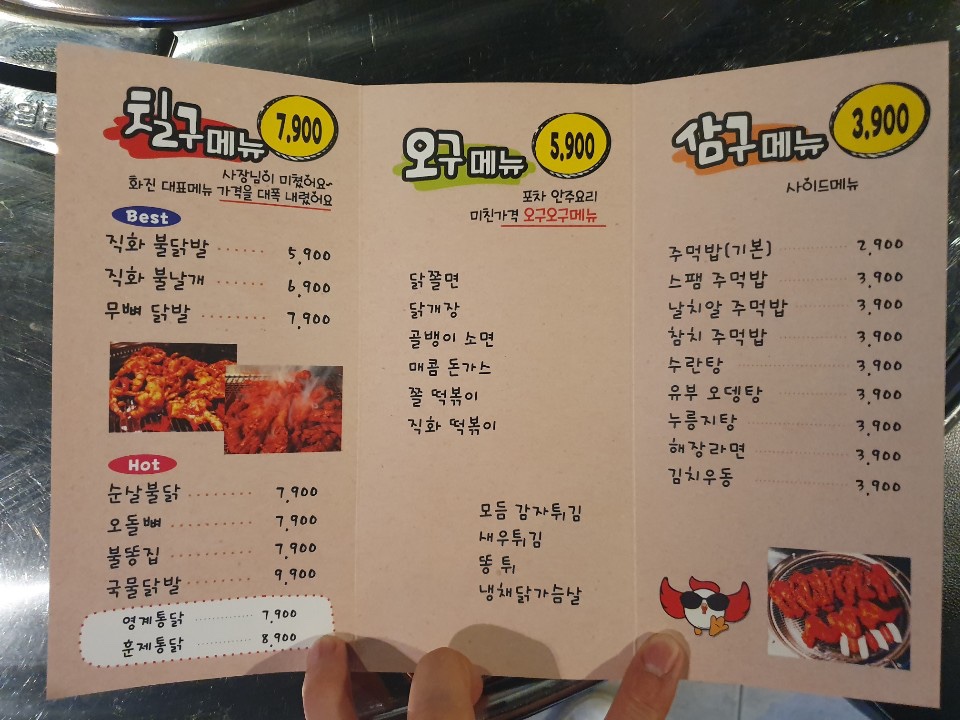 칠구메뉴 7.900
사장님이 미쳤어요~
화진 대표메뉴 가격을 대폭 내렸어요
Best
직화 불닭발 5,900
직화 불날개 6,900
무뼈 닭발 7,900
Hot
순살불닭 7,900
오돌뼈 7,900
불똥집 7,900
국물닭발 9,900
영계통닭 7,900
훈제통닭 8,900
오구메뉴 5,900
포차 안주요리
미친가격 오구오구메뉴
닭쫄면
닭개장
골뱅이 소면
매콤 돈가스
쫄 떡볶이
직화 떡볶이
모듬 감자튀김
새우튀김
똥 튀
냉채닭가슴살
삼구메뉴 3.900
사이드메뉴
주먹밥(기본) 2,900
스팸 주먹밥 3,900
날치알 주먹밥 3,900
참치 주먹밥 3,900
수란탕 3,900
유부 오뎅탕 3,900
누룽지탕 3,900
해장라면 3,900
김치우동 3,900